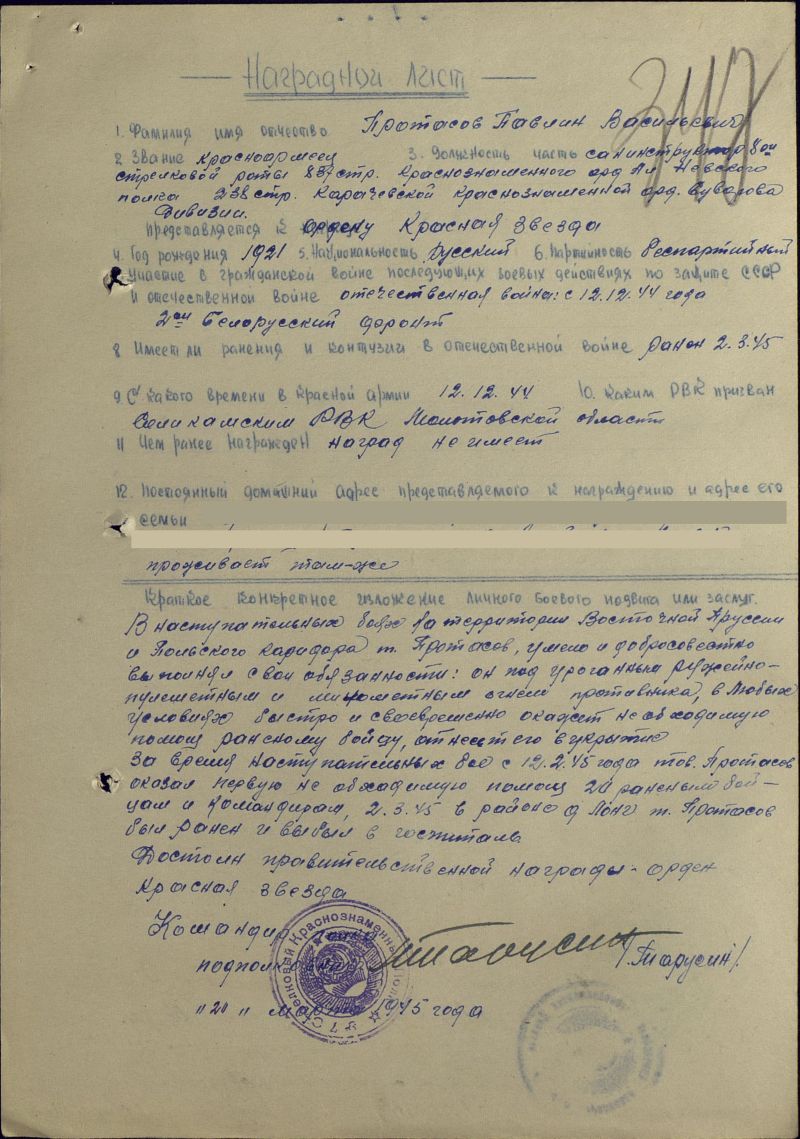 Наградной лист
1. Фамилия имя отчество Протасов Павлин Васильевич
2. Звание Красноармеец 3. Должность часть санинструктор 8ой
стрелковой роты 837 стр. Краснознаменного орд. Ал. Невского
полка 238 стр. Карачевской Краснознаменной орд. Суворова
Дивизии.
Представляется к Ордену Красная Звезда
4. Год рождения 1921 5. Национальность Русский 6. Партийность Беспартийный
Участие в гражданской войне последующих боевых действиях по защите СССР
и отечественной войне отечественная война: с 12.12.44 года
2ой Белорусский фронт
8 Имеет ли ранения и контузии в отечественной войне Ранен 2.3.45
9. С какого времени в Красной армии 12.12.44 10. Каким РВК призван
Соликамским РВК Молотовской области
11 Чем ранее награжден наград не имеет
12. Постоянный домашний адрес представляемого к награждению и адрес его
семьи
проживает там-же
Краткое конкретное изложение личного боевого подвига или заслуг.
В наступательных боях на территории Восточной Пруссии
и Польского кадидора т. Протасов, умело и добросовестно
выполнял свои обязанности: он под ураганным ружейно-
пулеметным и минометным огнем противника, в любых
условиях быстро и своевременно окажет необходимую
помощ раненому бойцу, отнесет его в укрытие
За время наступательных бое с 12.2.45 года тов. Протасов
оказал первую не обходимую помощ 20 раненым бой-
цам и командирам, 2.3.45 в районе д Лонг т. Протасов
был ранен и выбыл в госпиталь
Достоин правительственной награды - орден
Красная звезда
Командир полка
подполковник /Тиарусин/.
"2" марта 1945 года